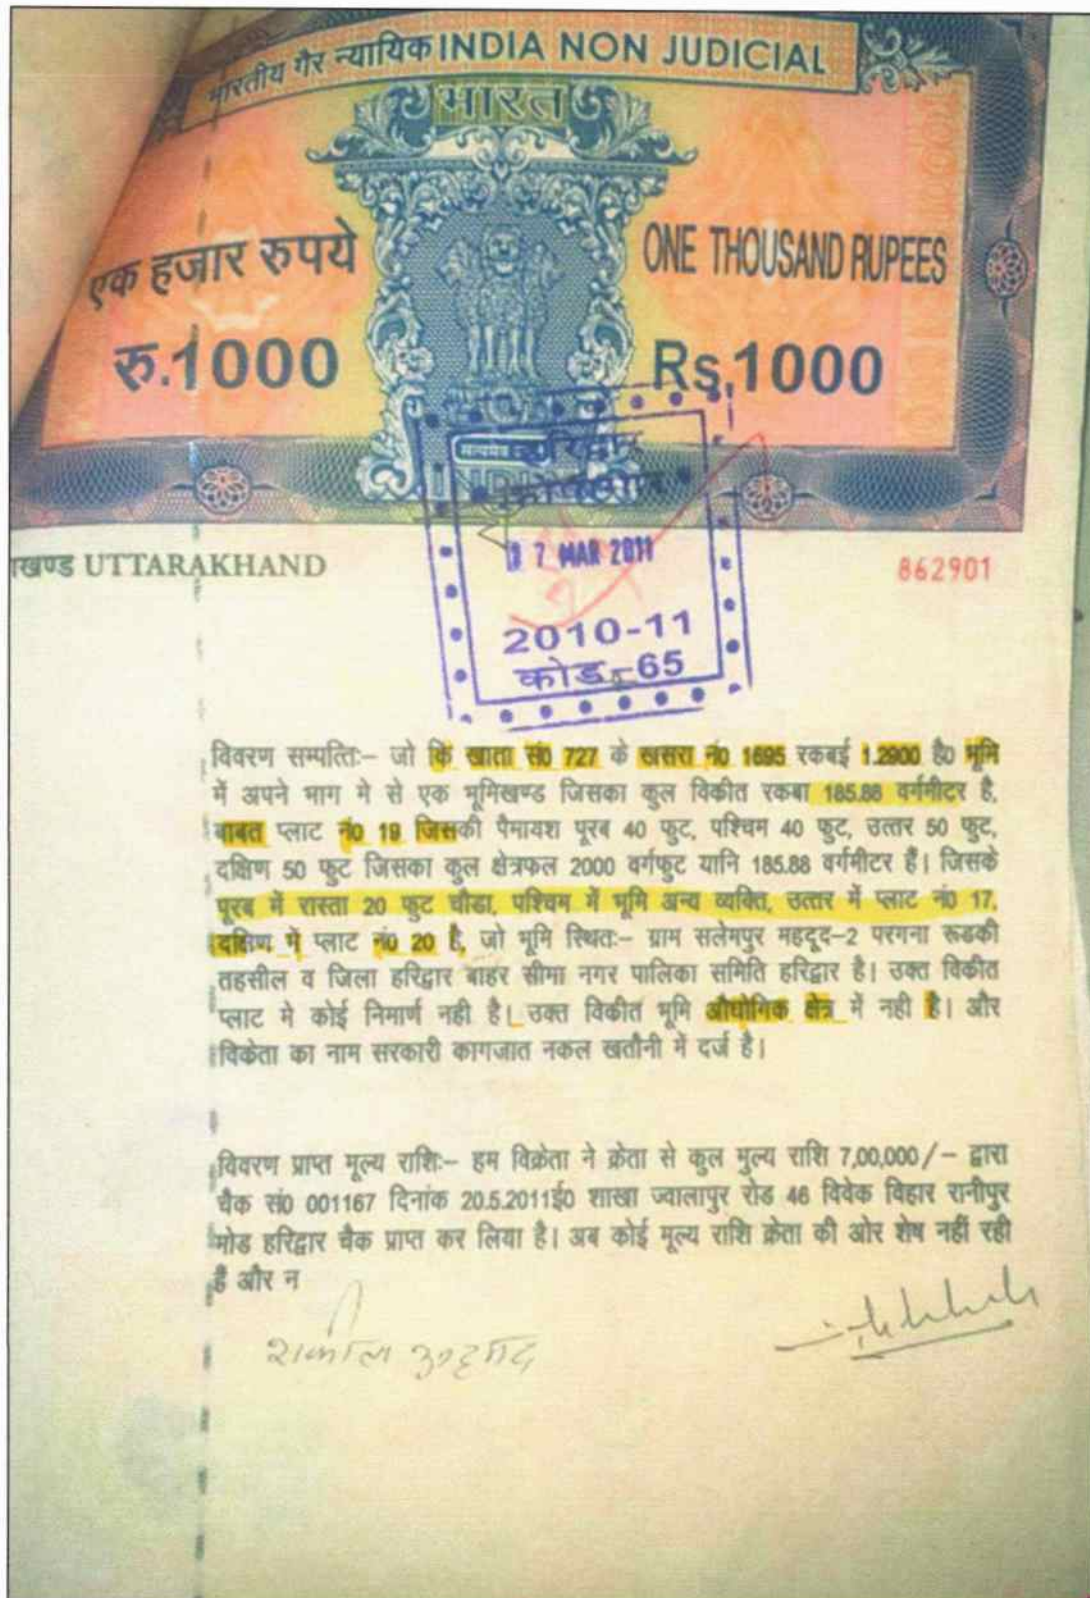 भारतीय गैर न्यायिक INDIA NON JUDICIAL
भारत
एक हजार रुपये
ONE THOUSAND RUPEES
रु.1000
Rs.1000
हरिद्वार
7 MAR 2011
2010-11
कोड-65
खण्ड UTTARAKHAND
862901
विवरण सम्पत्तिः– जो कि खाता सं0 727 के खसरा नं0 1695 रकबई 1.2900 है0 भूमि
में अपने भाग मे से एक भूमिखण्ड जिसका कुल विकीत रकबा 185.88 वर्गमीटर है,
बाबत प्लाट नं0 19 जिसकी पैमायश पूरब 40 फुट, पश्चिम 40 फुट, उत्तर 50 फुट,
दक्षिण 50 फुट जिसका कुल क्षेत्रफल 2000 वर्गफुट यानि 185.88 वर्गमीटर हैं। जिसके
पूरब में रास्ता 20 फुट चौडा, पश्चिम में भूमि अन्य व्यक्ति, उत्तर में प्लाट नं0 17,
दक्षिण में प्लाट नं0 20 है, जो भूमि स्थितः– ग्राम सलेमपुर महदूद–2 परगना रूडकी
तहसील व जिला हरिद्वार बाहर सीमा नगर पालिका समिति हरिद्वार है। उक्त विकीत
प्लाट मे कोई निमार्ण नही है। उक्त विकीत भूमि औघोगिक क्षेत्र में नही है। और
विकेता का नाम सरकारी कागजात नकल खतौनी में दर्ज है।
विवरण प्राप्त मूल्य राशिः– हम विक्रेता ने क्रेता से कुल मुल्य राशि 7,00,000/– द्वारा
चैक सं0 001167 दिनांक 20.5.2011ई0 शाखा ज्वालापुर रोड 46 विवेक विहार रानीपुर
मोड हरिद्वार चैक प्राप्त कर लिया है। अब कोई मूल्य राशि क्रेता की ओर शेष नहीं रही
है और न